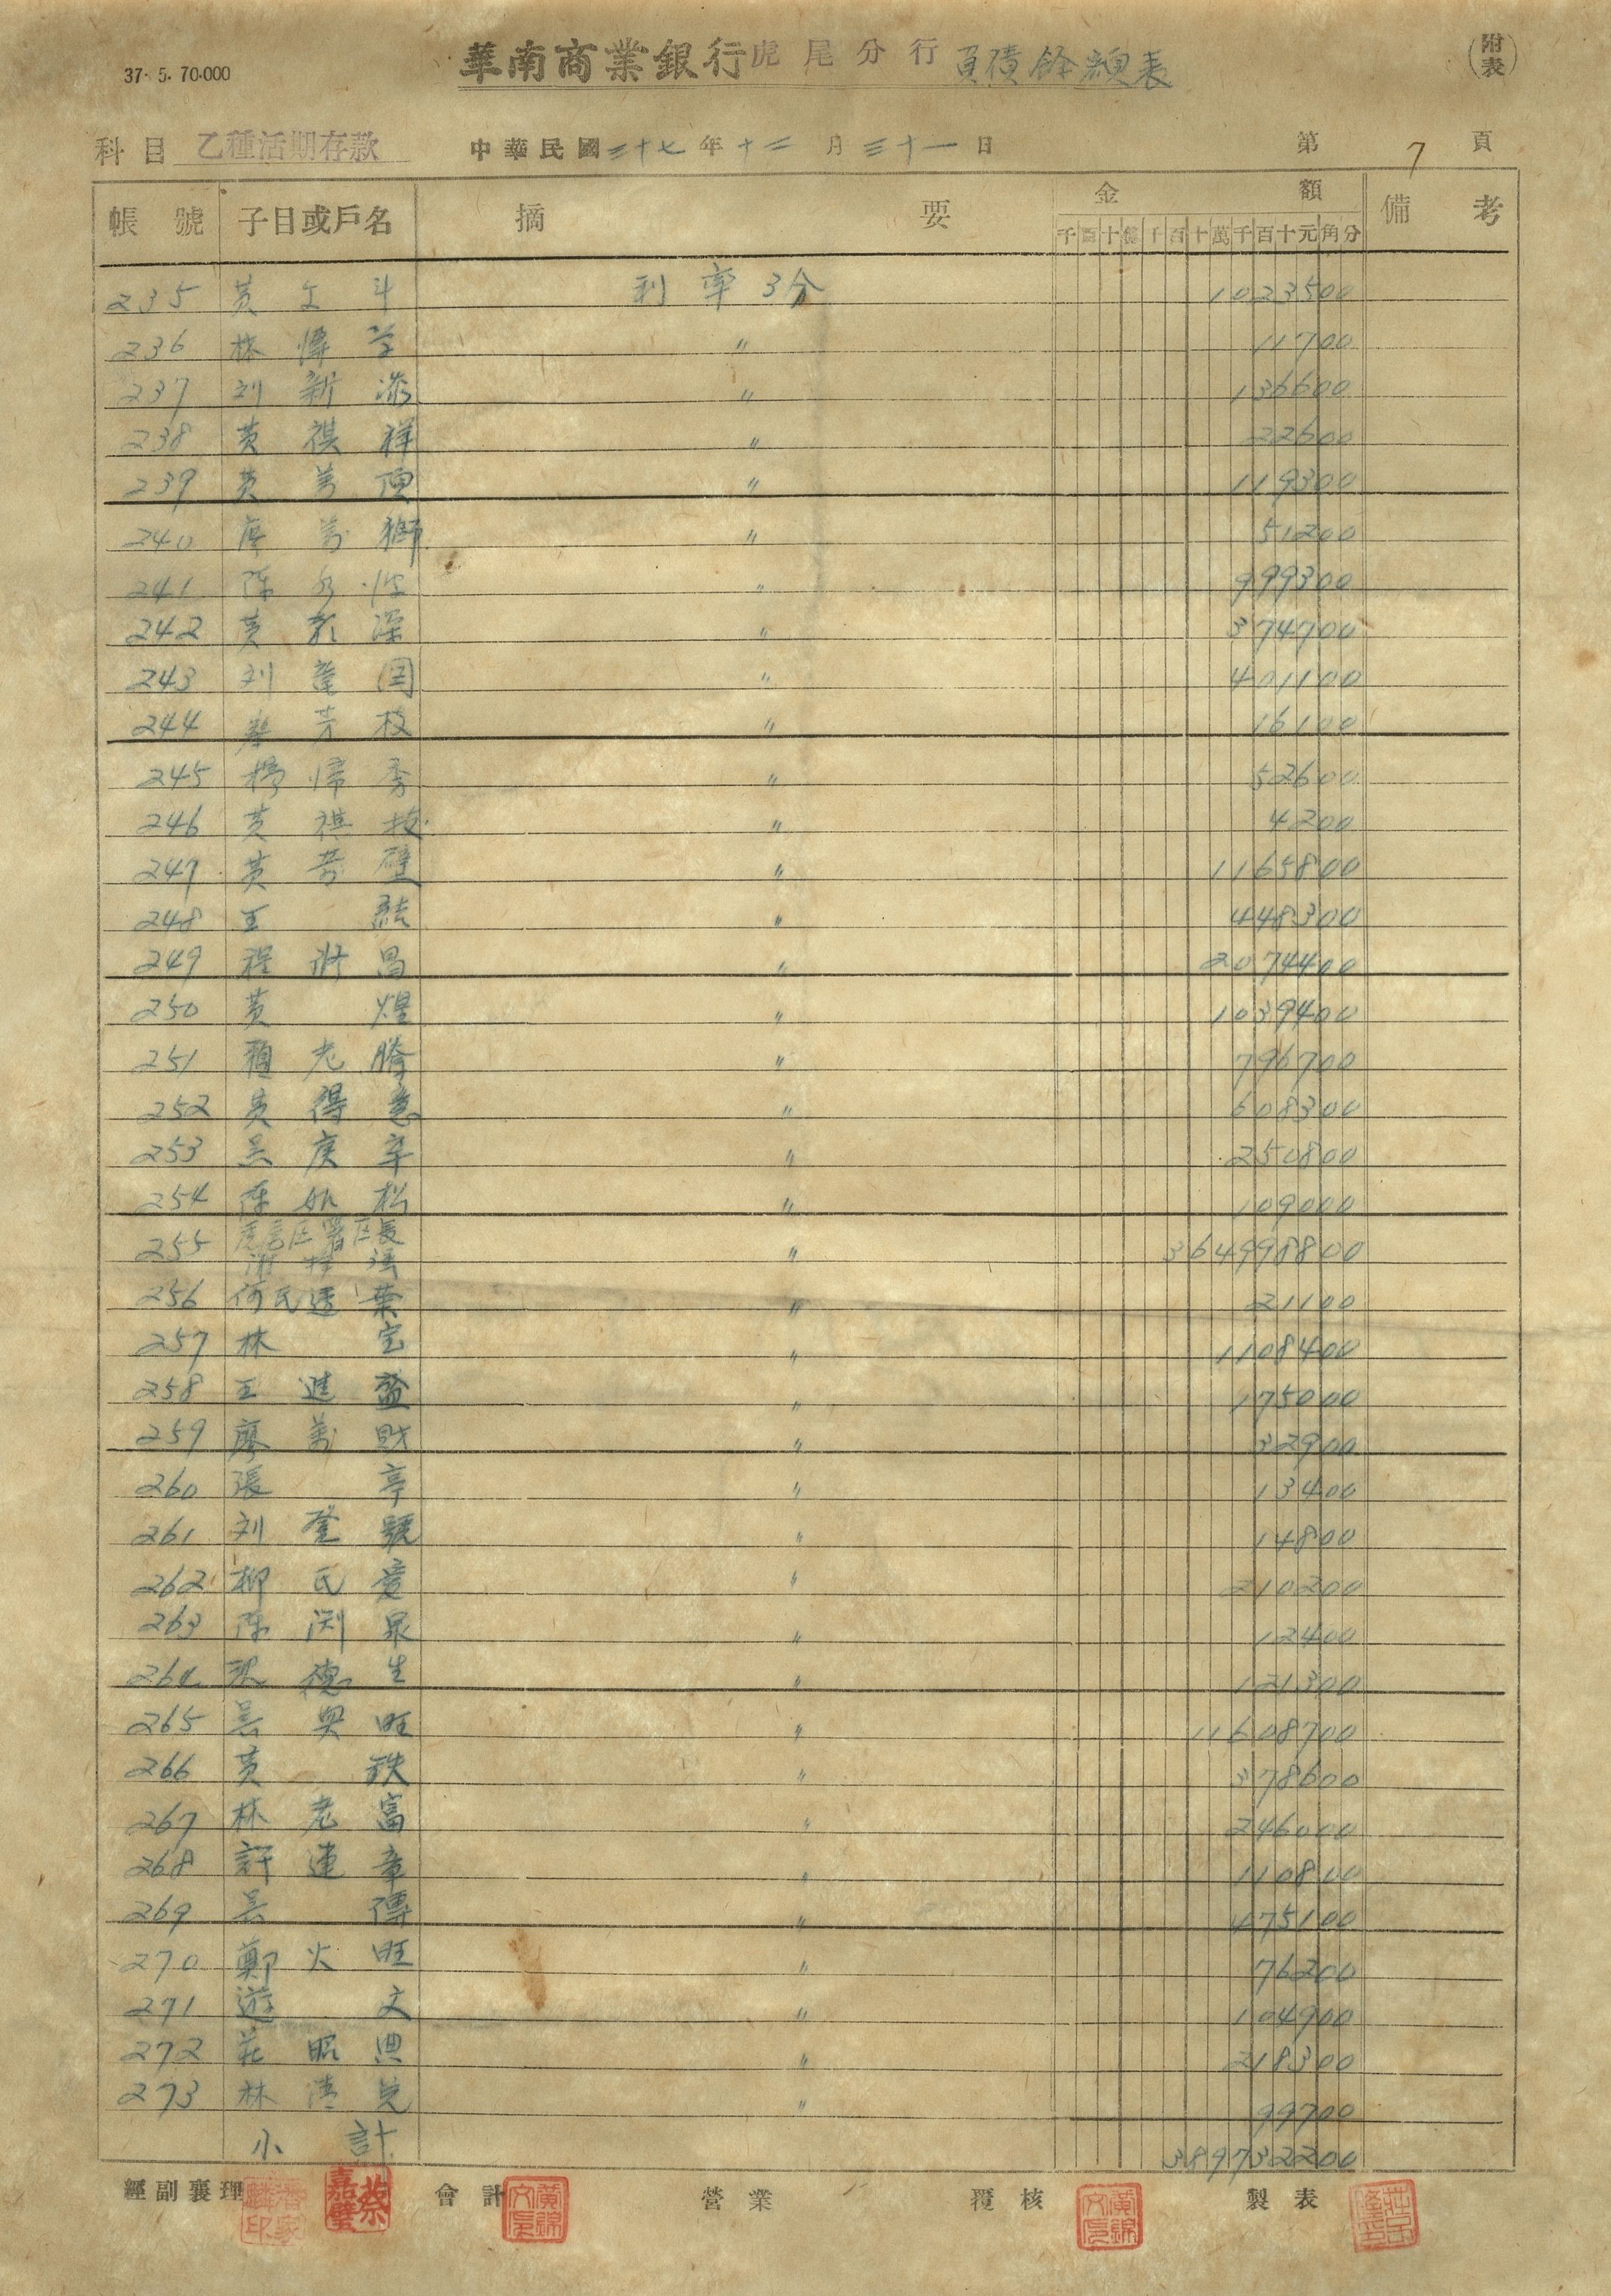 37. 5. 70.000
華南商業銀行虎尾分行 負債餘額表
(附表)
科目 乙種活期存款 中華民國三十七年十二月三十一日 第7頁
帳號 子目或戶名 摘要 金額 備考
千百十億千百十萬千百十元角分
235 黃文斗 利率3分 1023500
236 林 〃 11700
237 刘新添 〃 136600
238 黃祺祥 〃 22600
239 黃萬頂 〃 119300
240 廖萬獅 〃 51200
241 陳 〃 999300
242 黃彰深 〃 374700
243 刘 〃 401100
244 蔡芳枝 〃 16100
245 楊 〃 52600
246 黃祺 〃 4200
247 黃芳壁 〃 1165800
248 王結 〃 448300
249 程 昌 〃 2074400
250 黃煌 〃 1039400
251 賴老勝 〃 796700
252 黃得意 〃 608300
253 吳庚辛 〃 250800
254 陳 松 〃 109000
255 虎尾区署区長 〃 364998800
256 何氏透葉 〃 21100
257 林宝 〃 1108400
258 王進益 〃 175000
259 廖萬財 〃 32900
260 張亭 〃 13400
261 刘登號 〃 14800
262 柳氏愛 〃 210200
263 陳渊泉 〃 12400
264 張德生 〃 121300
265 吳興旺 〃 11608700
266 黃鉄 〃 378600
267 林老富 〃 246000
268 許連章 〃 110800
269 吳傳 〃 475100
270 鄭火旺 〃 76200
271 遊文 〃 104900
272 莊昭典 〃 218300
273 林清 〃 99700
小計 389732200
經副襄理 蔡嘉璧 會計 營業 覆核 製表